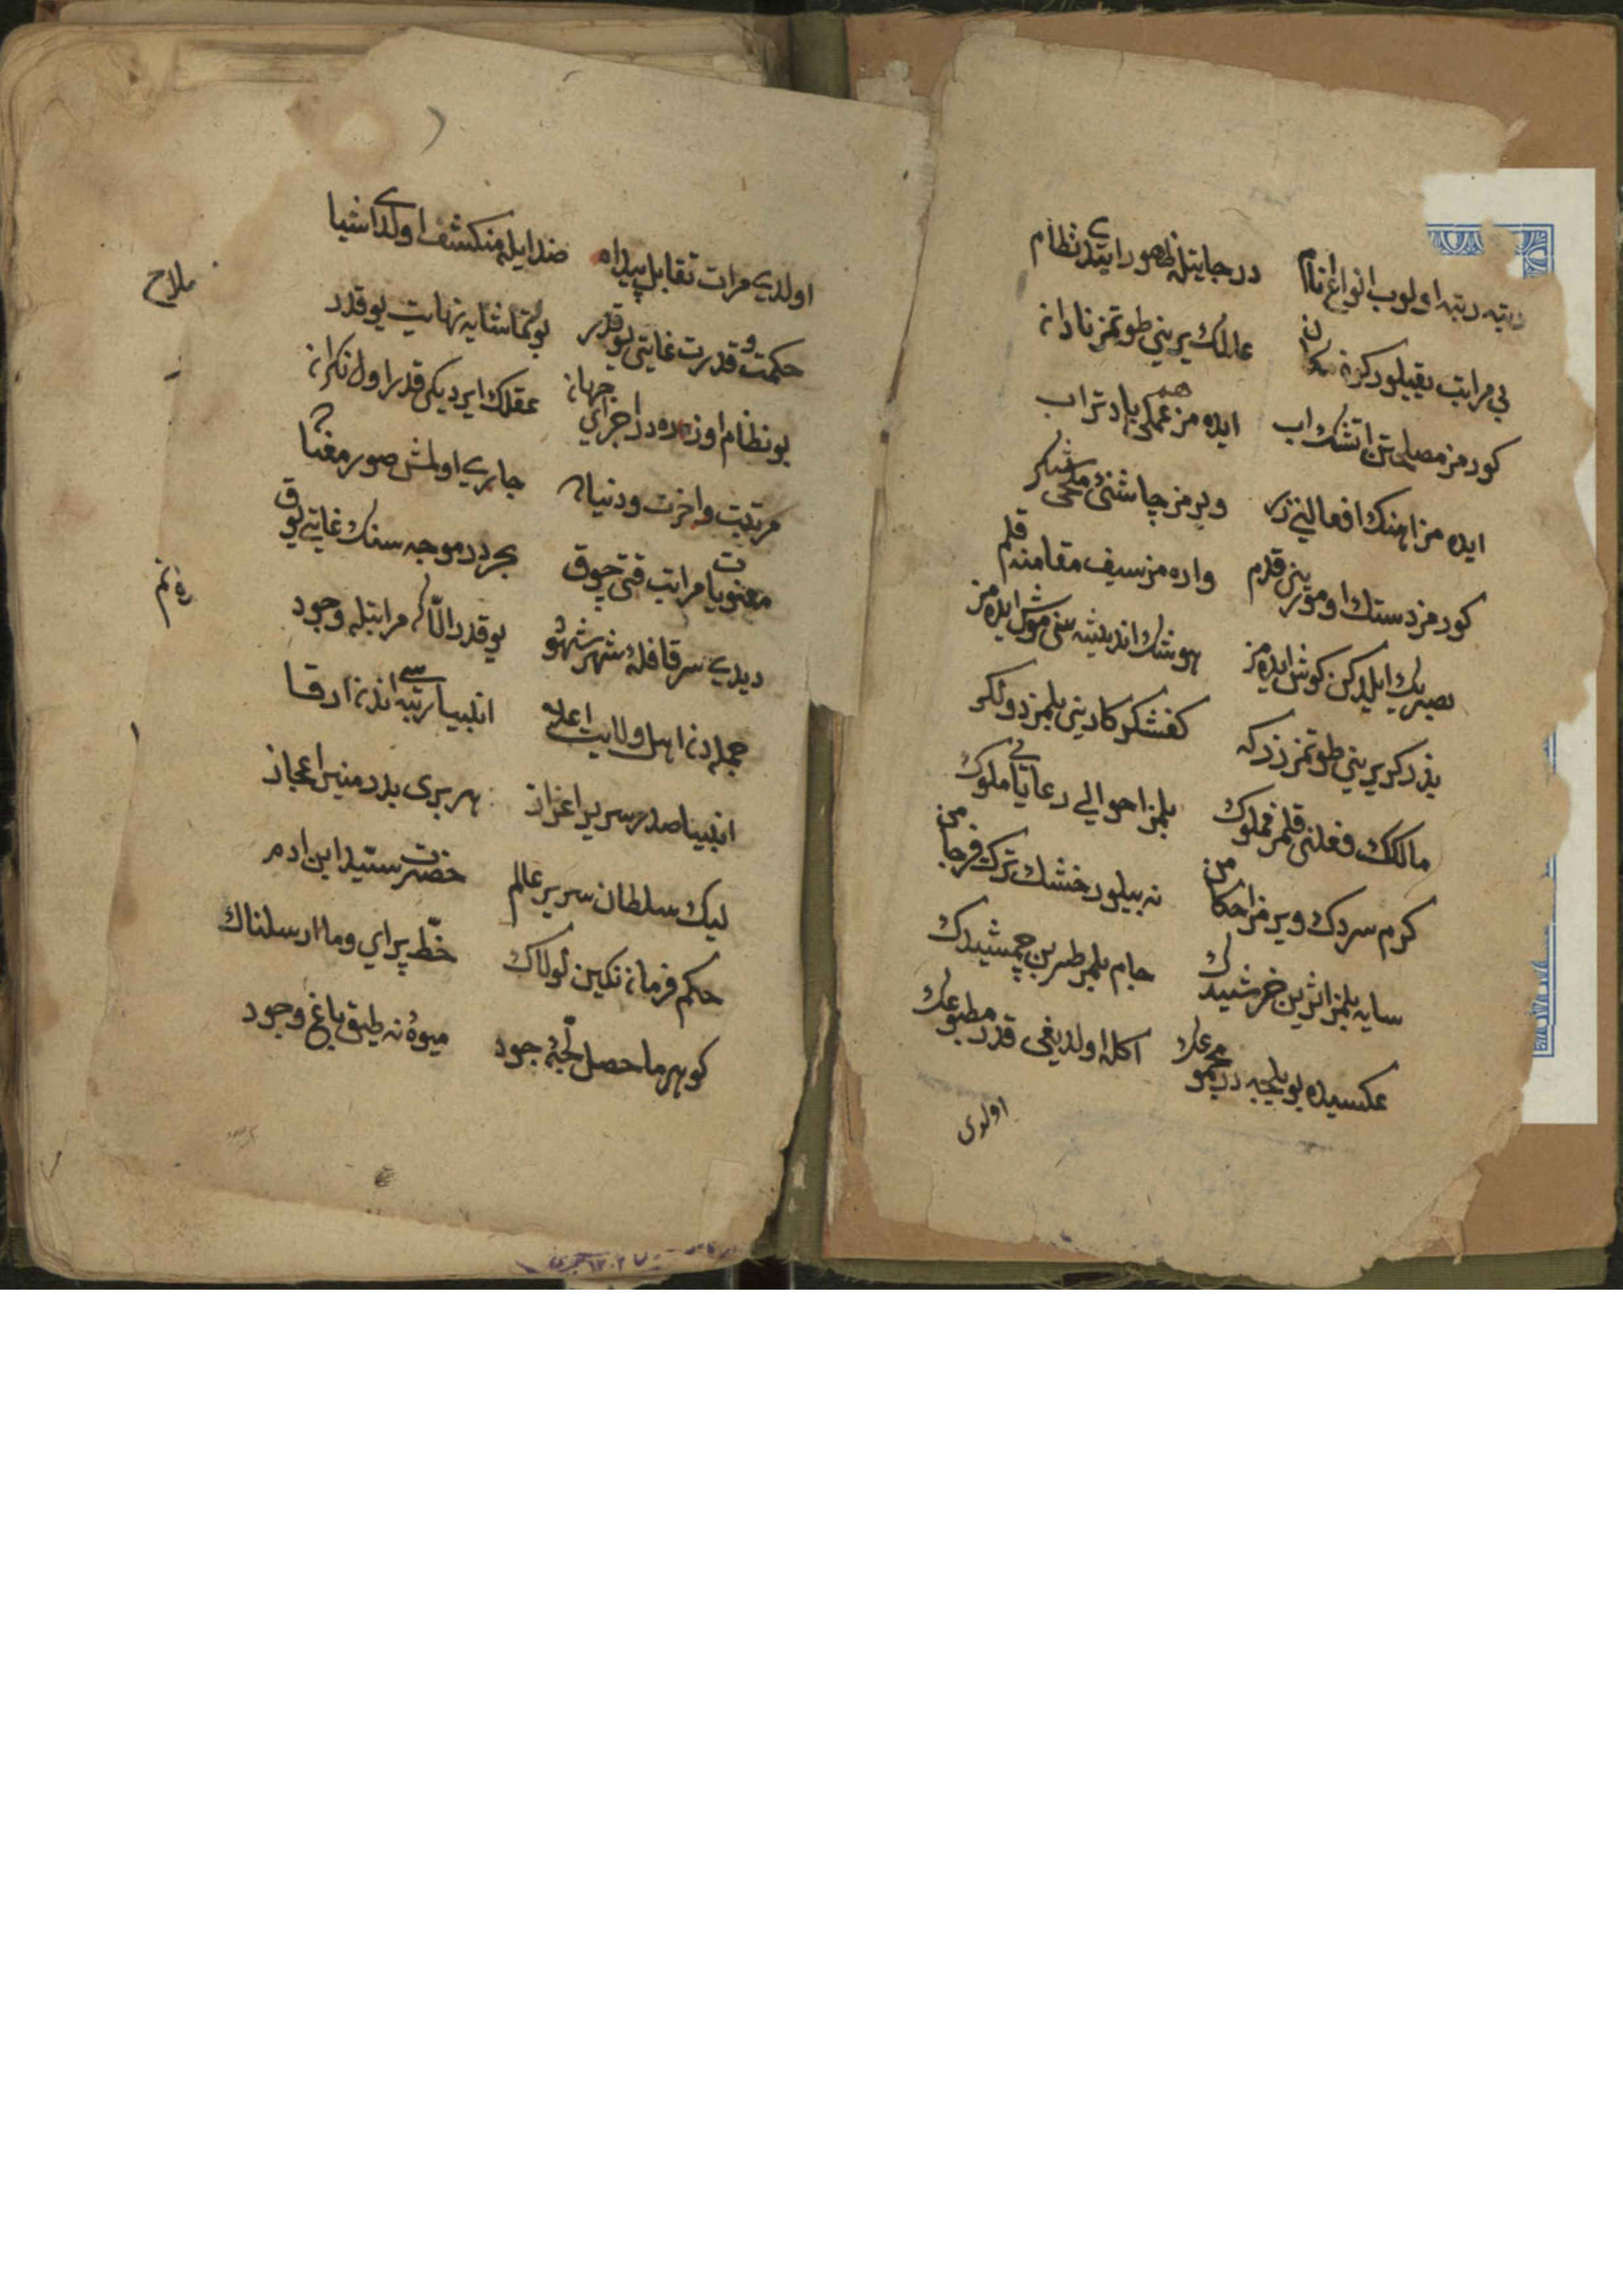 رتبه رتبه اولوب انواع انام درجاتیله ظهور ایتدی نظام
بی مراتب یقیلور کون مکان عالمك یرینی طوتمز نادان
کورمز مصلحتن اتشك اب ایده مز هم عملی باد تراب
ایده مز اهنك افعالنی زر ویرمز چاشنئ ملحی شکر
کورمز دستك اوموزین قدم واره مز سیف مقامنه قلم
بصرك ایلدیکن کوش ایده مز هوشك اندیشه سنی موش ایده مز
یرینی طوتمز زرکر کفشکر کارینی بلمز دولکر
مالكك فعلنی قلمز مملوك بلمز احوالی رعایا نی ملوك
کرم سردك ویرمز احکامن نه بیلور خشك ترك فرجامن
سایه بلمز اثرین خرشیدك جام بلمز طربن جمشیدك
عکسیده بویلجه در مجموعك اکله اولدیغی قدر مطبوعك
اولدی
اولدی مرات تقابل پیدا ضد ایله منکشف اولدی اشیا
حکمت و قدرت غایتی یوقدر بو تماشایه نهایت یوقدر
بو نظام اوزره در اجزای جهان عقلك ایردیکی قدر اول نکران
مرتبت واخرت ودنیا جاری اولمش صور معنا
معنویات مراتب قتی چوق بحر در موجه سنك غایتی یوق
دیدی سر قافلۀ شهر شهود یوقدر الا که مراتبله وجود
جمله دن اهل ولایت اعلی انبیا رتبه سی اندن ارقا
انبیا صدر سریر اعزاز هر بری بدر منیر اعجاز
لیك سلطان سریر عالم حضرت سید ابن ادم
حکم فرمان نکین لولاك خط پرای وما ارسلناك
کوهر ماحصل لجۀ جود میوۀ نه طبق باغ وجود